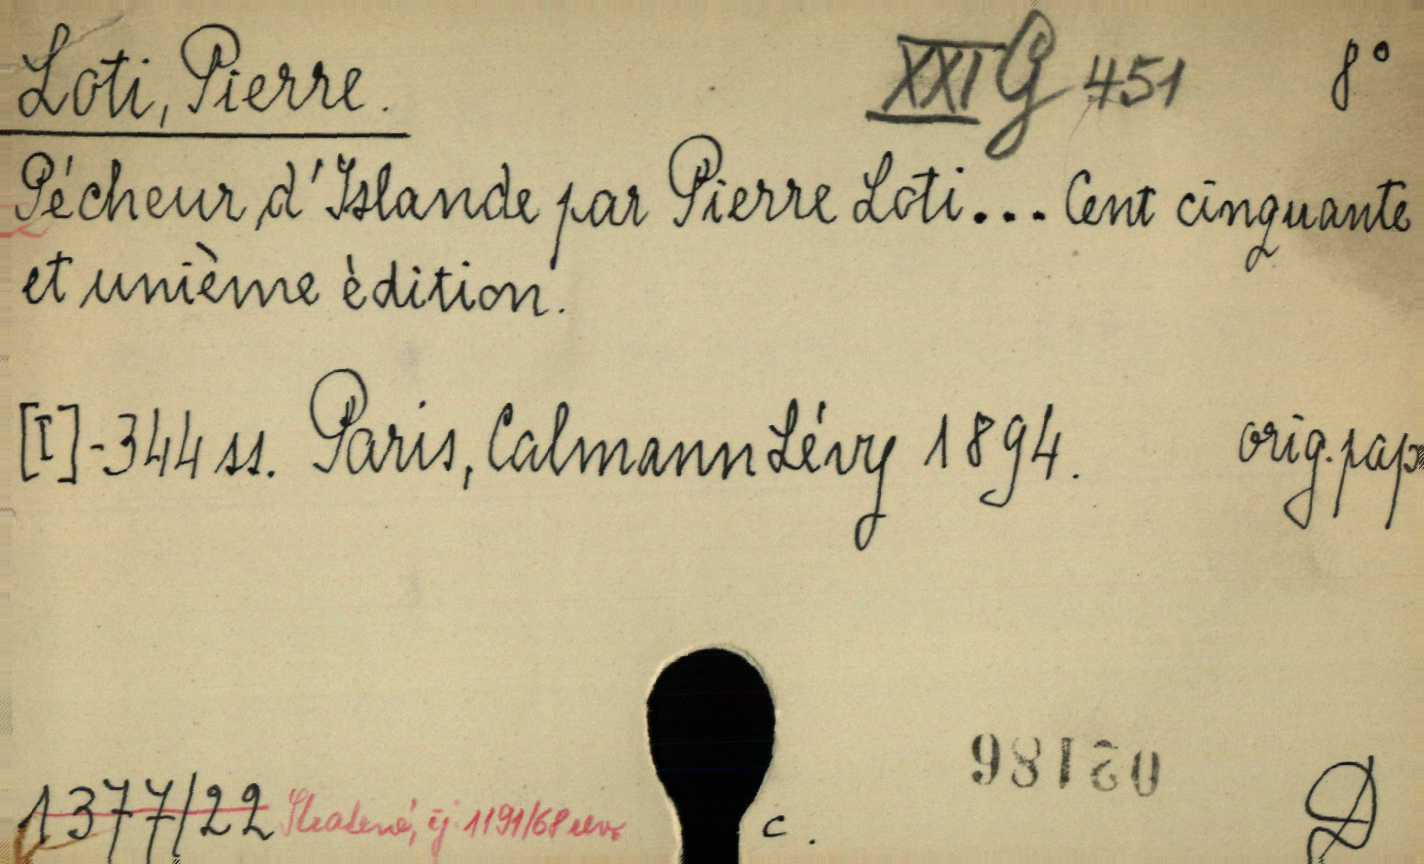 Loti, Pierre. XXI G 451 8°
Pécheur d'Islande par Pierre Loti... Cent cinquante
et unième èdition.
[I]-344 ss. Paris, Calmann Lévy 1894. orig. pap
1377/22 Ztracené, čj. 1191/68 c.